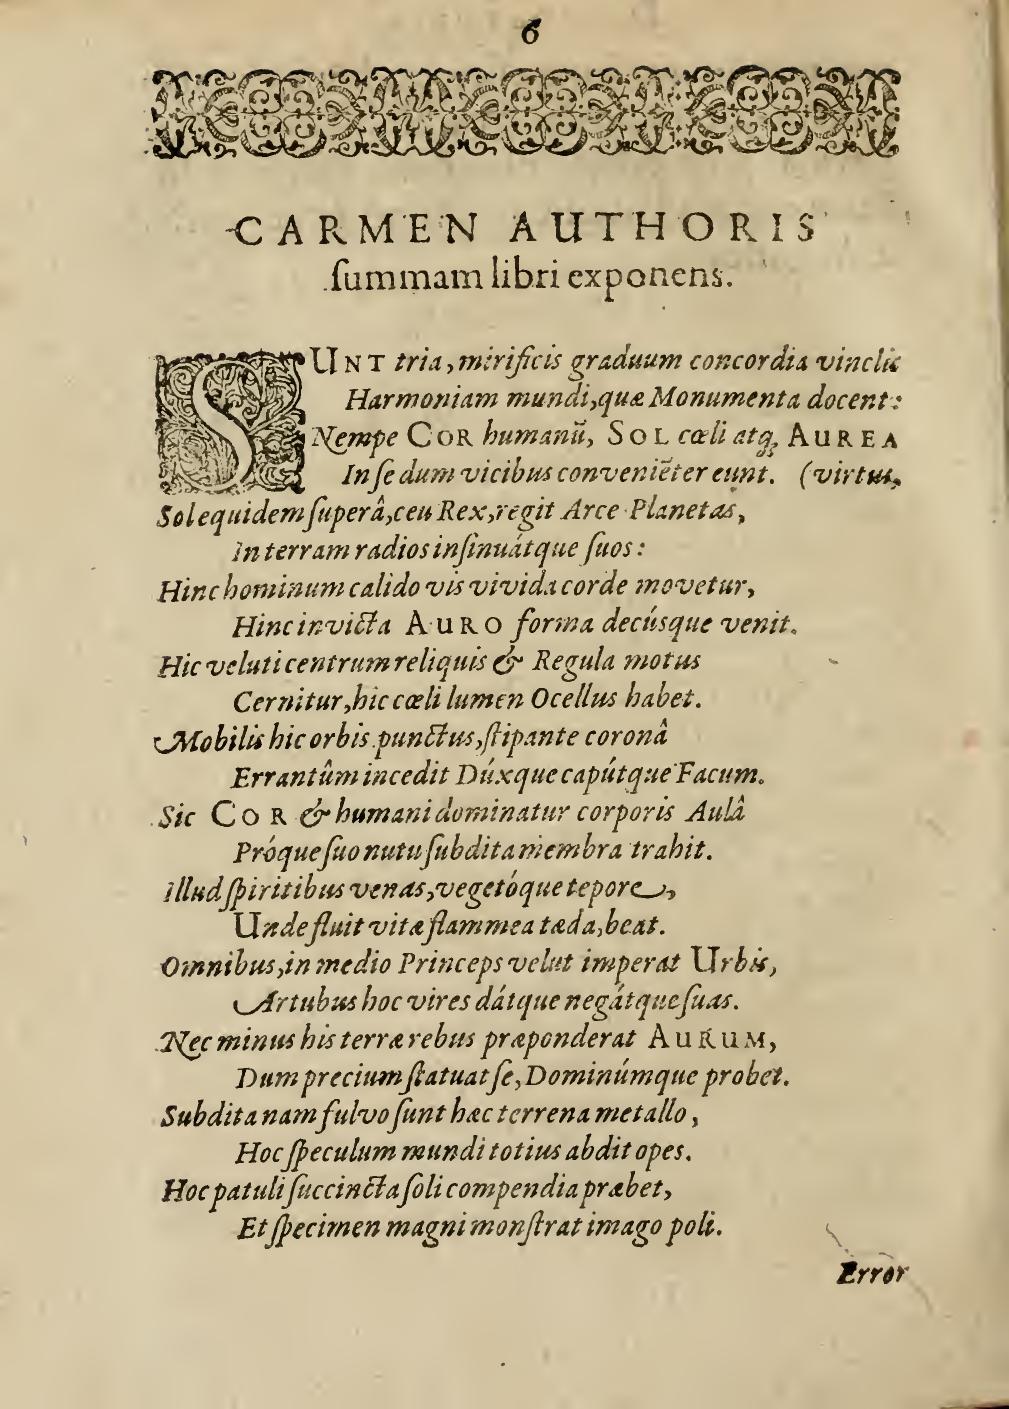 6
CARMEN AUTHORIS
ſummam libri exponens.
SUNT tria, mirificis graduum concordia vinclis
Harmoniam mundi, quæ Monumenta docent:
Nempe COR humanũ, SOL cœli atq; AUREA
In ſe dum vicibus conveniẽter eunt. (virtus,
Sol equidem ſuperâ, ceu Rex, regit Arce Planetas,
In terram radios inſinuátque ſuos:
Hinc hominum calido vis vivida corde movetur,
Hinc invicta AURO forma decúsque venit.
Hic veluti centrum reliquis & Regula motus
Cernitur, hic cœli lumen Ocellus habet.
Mobilis hic orbis punctus, ſtipante coronâ
Errantûm incedit Dúxque capútque Facum.
Sic COR & humani dominatur corporis Aulâ
Próque ſuo nutu ſubdita membra trahit.
Illud ſpiritibus venas, vegetóque tepore,
Unde fluit vitæ flammea tæda, beat.
Omnibus, in medio Princeps velut imperat Urbis,
Artubus hoc vires dátque negátque ſuas.
Nec minus his terræ rebus præponderat AURUM,
Dum precium ſtatuat ſe, Dominúmque probet.
Subdita nam fulvo ſunt hæc terrena metallo,
Hoc ſpeculum mundi totius abdit opes.
Hoc patuli ſuccincta ſoli compendia præbet,
Et ſpecimen magni monſtrat imago poli.
Error